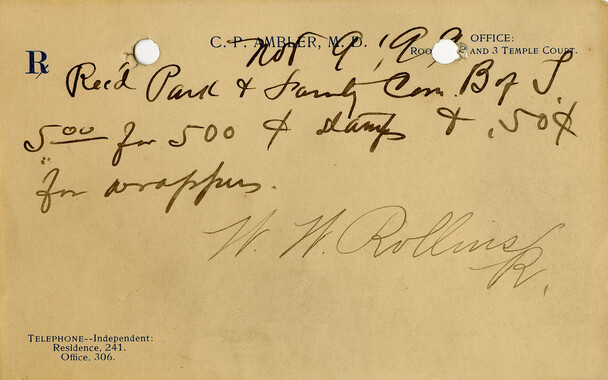 C. P. AMBLER, M. D.
OFFICE:
AND 3 TEMPLE COURT.
℞
Nov 9, 1909
Rec'd Park & Com. B of T
5.00 for 500 ¢ stamps & .50¢
for wrappers.
W. W. Rollins
R.
TELEPHONE--Independent:
Residence, 241.
Office, 306.